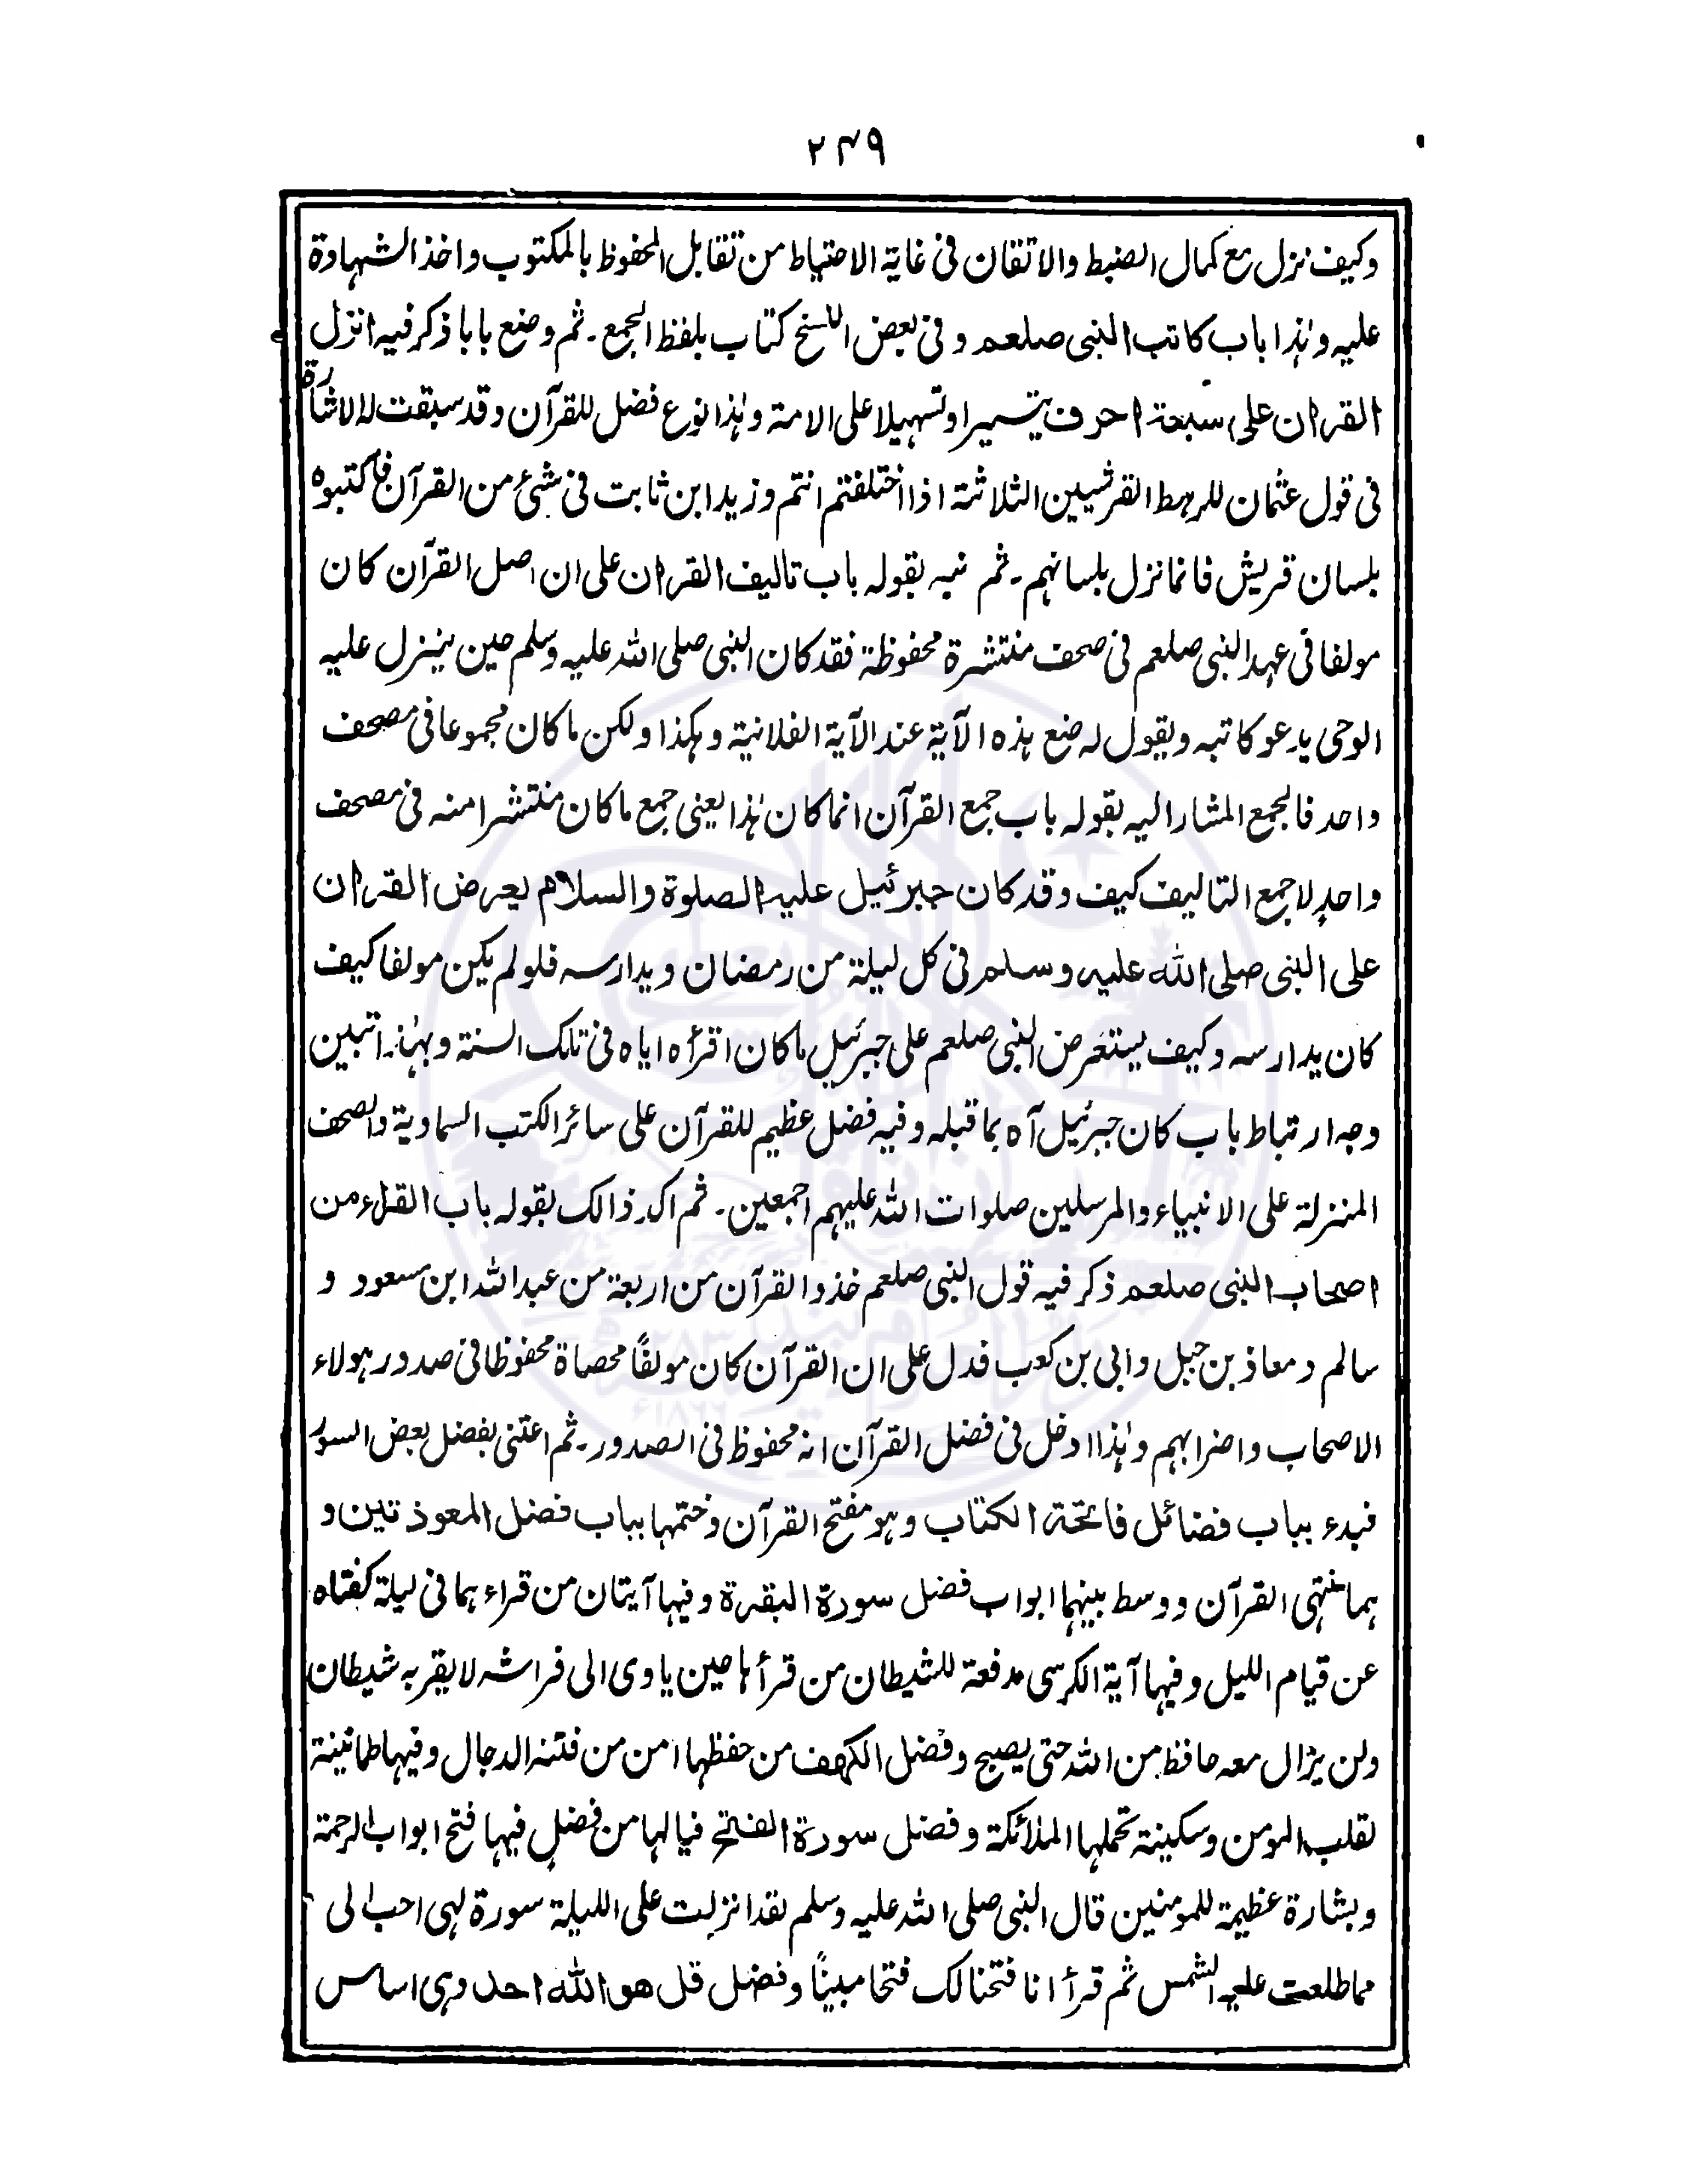 ۲۴۹
وکیف نزل مع کمال الضبط والاتقان فی غایة الاحتیاط من تقابل المحفوظ بالمکتوب واخذ الشهادة
علیه وہٰذا باب کاتب النبی صلعم وفی بعض النسخ کتاب بلفظ الجمع۔ ثم وضع بابا ذکر فیه انزل
القراٰن علی سبعة احرف یتسیرا وتسہیلا علی الامة وہٰذا نوع فضل للقرآن وقد سبقت له الاشارة
فی قول عثمان للرہط القرشیین الثلاثة اذا اختلفتم انتم وزید ابن ثابت فی شئ من القرآن فاکتبوہ
بلسان قریش فانما نزل بلسانہم۔ ثم نبه بقوله باب تالیف القراٰن علی ان اصل القرآن کان
مولفا فی عہد النبی صلعم فی صحف منتشرة محفوظة فقد کان النبی صلی اللہ علیه وسلم حین ینزل علیه
الوحی یدعو کاتبه ویقول له ضع ہذہ الآیة عند الآیة الفلانیة وہکذا ولکن ما کان مجموعا فی مصحف
واحد فالجمع المشار الیه بقوله باب جمع القرآن انما کان ہٰذا یعنی جمع ما کان منتشرا منه فی مصحف
واحدٍ لا جمع التالیف کیف وقد کان جبرئیل علیه الصلوة والسلام یعرض القراٰن
علی النبی صلی اللہ علیه وسلم فی کل لیلة من رمضان ویدارسه فلو لم یکن مولفا کیف
کان یدارسه وکیف یستعرض النبی صلعم علی جبرئیل ما کان اقرأہ ایاہ فی تلک السنة وبہٰذا تبین
وجه ارتباط باب کان جبرئیل آہ بما قبله وفیه فضل عظیم للقرآن علی سائر الکتب السماویة والصحف
المنزلة علی الانبیاء والمرسلین صلوات اللہ علیہم اجمعین۔ ثم اکد ذالک بقوله باب القراء من
اصحاب النبی صلعم ذکر فیه قول النبی صلعم خذوا القرآن من اربعة من عبداللہ ابن مسعود و
سالم ومعاذ بن جبل وابی بن کعب فدل علی ان القرآن کان مولفاً محصاة محفوظا فی صدور ہولاء
الاصحاب واضرابہم وہٰذا ادخل فی فضل القرآن انه محفوظ فی الصدور۔ ثم اعتنی بفضل بعض السور
فبدء بباب فضائل فاتحة الکتاب وہو مفتح القرآن وختمہا بباب فضل المعوذتین و
ہما منتہی القرآن ووسط بینہما ابواب فضل سورة البقرة وفیہا آیتان من قراء ہما فی لیلة کفتاہ
عن قیام اللیل وفیہا آیة الکرسی مدفعة للشیطان من قرأہا حین یاوی الی فراشه لا یقربه شیطان
ولن یزال معه حافظ من اللہ حتی یصبح وفضل الکہف من حفظہا امن من فتنة الدجال وفیہا طمانینة
لقلب المومن وسکینة تحملہا الملائکة وفضل سورة الفتح فیالہا من فضلٍ فیہا فتح ابواب الرحمة
وبشارة عظیمة للمومنین قال النبی صلی اللہ علیه وسلم لقد انزلت علی اللیلة سورة لہی احب الی
مما طلعت علیه الشمس ثم قرأ انا فتحنا لک فتحا مبیناً وفضل قل هو الله احد وہی اساس